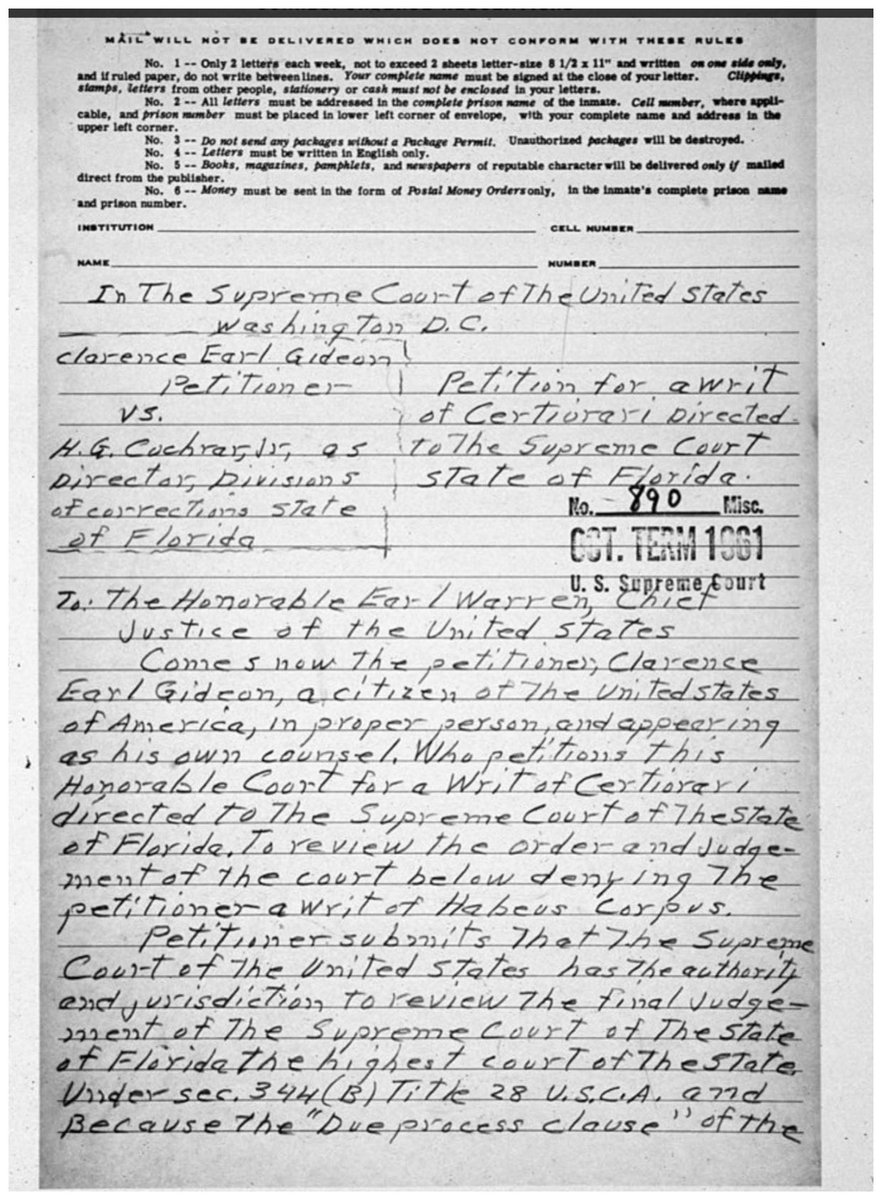 MAIL WILL NOT BE DELIVERED WHICH DOES NOT CONFORM WITH THESE RULES
No. 1 -- Only 2 letters each week, not to exceed 2 sheets letter-size 8 1/2 x 11" and written on one side only,
and if ruled paper, do not write between lines. Your complete name must be signed at the close of your letter. Clippings,
stamps, letters from other people, stationery or cash must not be enclosed in your letters.
No. 2 -- All letters must be addressed in the complete prison name of the inmate. Cell number, where appli-
cable, and prison number must be placed in lower left corner of envelope, with your complete name and address in the
upper left corner.
No. 3 -- Do not send any packages without a Package Permit. Unauthorized packages will be destroyed.
No. 4 -- Letters must be written in English only.
No. 5 -- Books, magazines, pamphlets, and newspapers of reputable character will be delivered only if mailed
direct from the publisher.
No. 6 -- Money must be sent in the form of Postal Money Orders only, in the inmate's complete prison name
and prison number.
INSTITUTION CELL NUMBER
NAME NUMBER
In The Supreme Court of The United States
Washington D.C.
Clarence Earl Gideon
Petitioner
vs.
H.G. Cochran, Jr, as
Director, Divisions
of corrections State
of Florida
Petition for a writ
of Certiorari Directed
to The Supreme Court
State of Florida.
No. 890 Misc.
OCT. TERM 1961
U. S. Supreme Court
To: The Honorable Earl Warren, Chief
Justice of the United States
Comes now The petitioner, Clarence
Earl Gideon, a citizen of The United states
of America, in proper person, and appearing
as his own counsel. Who petitions this
Honorable Court for a Writ of Certiorari
directed to The Supreme Court of The State
of Florida. To review the order and Judge-
ment of the court below denying The
petitioner a writ of Habeus Corpus.
Petitioner submits That The Supreme
Court of The United States has The authority
and jurisdiction to review The final Judge-
ment of The Supreme Court of The State
of Florida the highest court of The State.
Under sec. 344(B) Title 28 U.S.C.A. and
Because The "Due process clause" of the